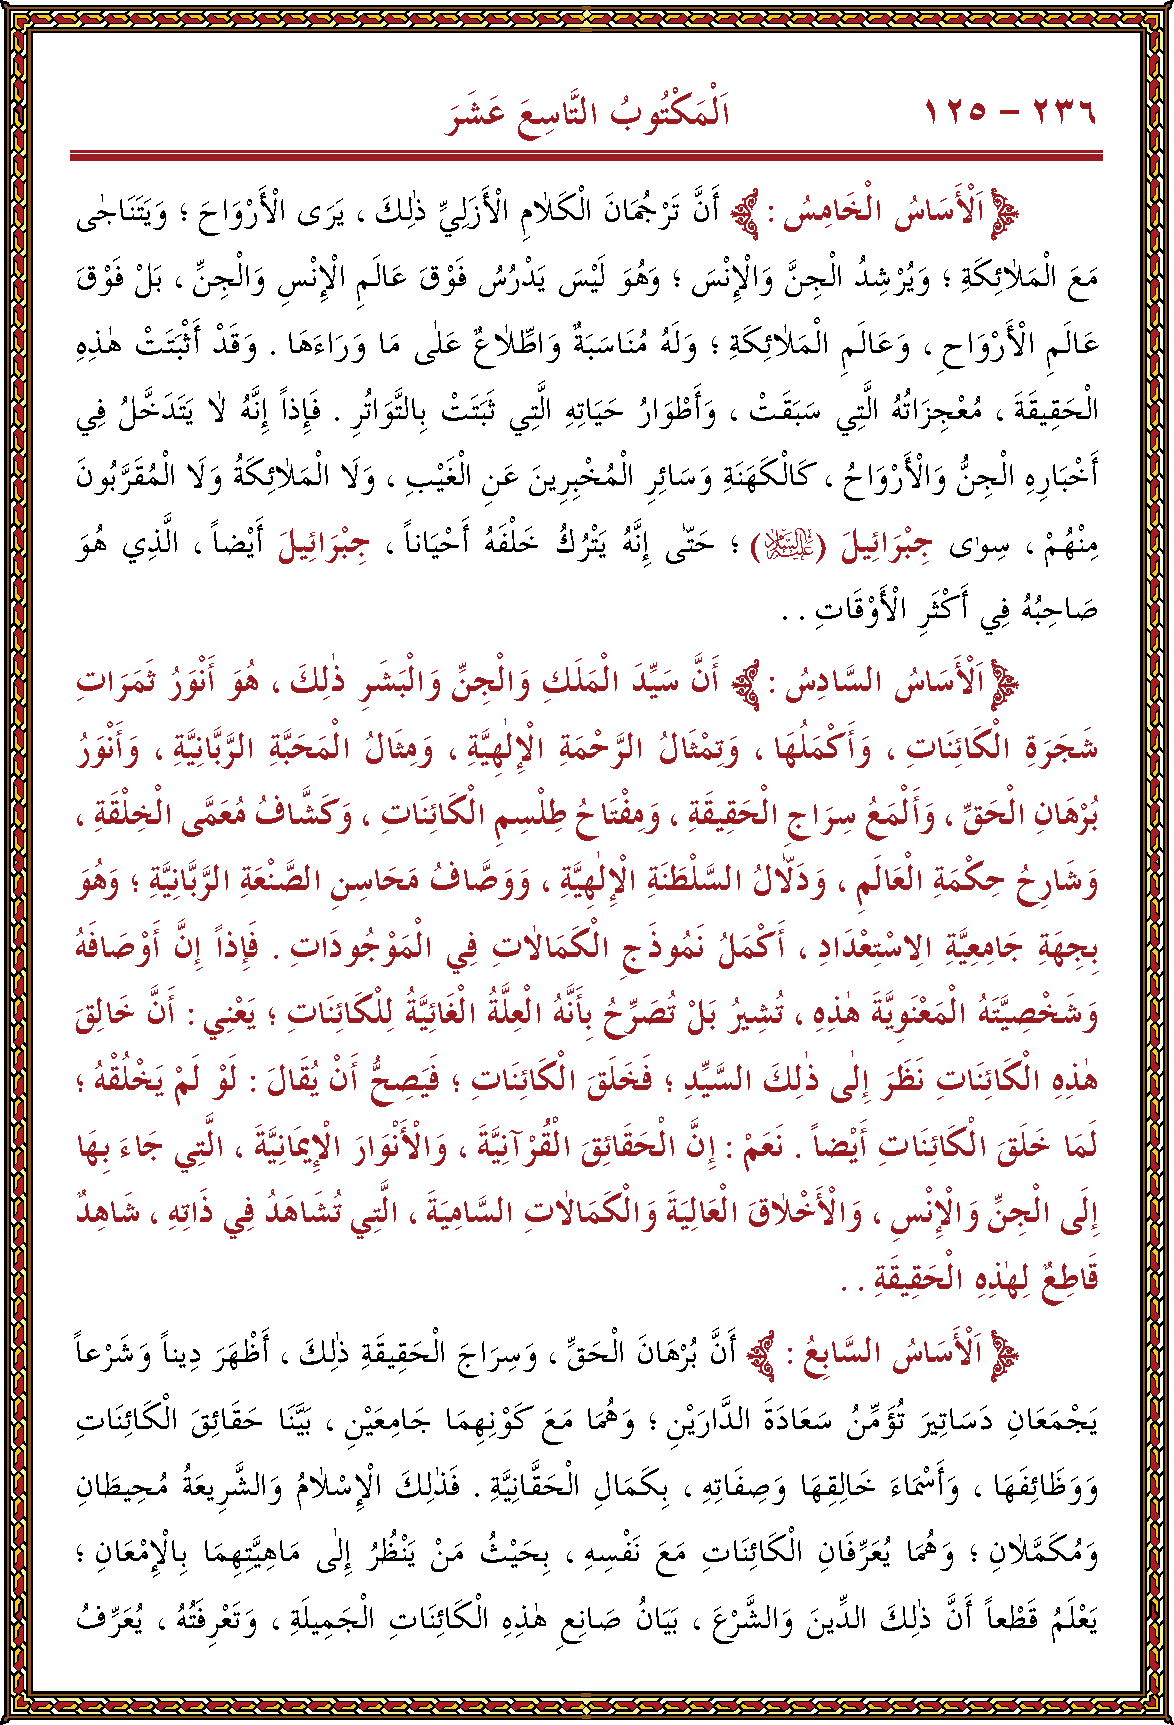 ٢٣٦ – ١٢٥ اَلْمَكْتُوبُ التَّاسِعَ عَشَرَ
﴿اَلْأَسَاسُ الْخَامِسُ : ﴾ أَنَّ تَرْجُمَانَ الْكَلَامِ الْأَزَلِيِّ ذٰلِكَ ، يَرَى الْأَرْوَاحَ ؛ وَيَتَنَاجٰى
مَعَ الْمَلٰائِكَةِ ؛ وَيُرْشِدُ الْجِنَّ وَالْإِنْسَ ؛ وَهُوَ لَيْسَ يَدْرُسُ فَوْقَ عَالَمِ الْإِنْسِ وَالْجِنِّ ، بَلْ فَوْقَ
عَالَمِ الْأَرْوَاحِ ، وَعَالَمِ الْمَلٰائِكَةِ ؛ وَلَهُ مُنَاسَبَةٌ وَاطِّلٰاعٌ عَلٰى مَا وَرَاءَهَا . وَقَدْ أَثْبَتَتْ هٰذِهِ
الْحَقِيقَةَ ، مُعْجِزَاتُهُ الَّتِي سَبَقَتْ ، وَأَطْوَارُ حَيَاتِهِ الَّتِي ثَبَتَتْ بِالتَّوَاتُرِ . فَإِذاً إِنَّهُ لٰا يَتَدَخَّلُ فِي
أَخْبَارِهِ الْجِنُّ وَالْأَرْوَاحُ ، كَالْكَهَنَةِ وَسَائِرِ الْمُخْبِرِينَ عَنِ الْغَيْبِ ، وَلَا الْمَلٰائِكَةُ وَلَا الْمُقَرَّبُونَ
مِنْهُمْ ، سِوٰى جِبْرَئِيلَ (عليه السلام) ؛ حَتّٰى إِنَّهُ يَتْرُكُ خَلْفَهُ أَحْيَاناً ، جِبْرَائِيلَ أَيْضاً ، الَّذِي هُوَ
صَاحِبُهُ فِي أَكْثَرِ الْأَوْقَاتِ . .
﴿اَلْأَسَاسُ السَّادِسُ : ﴾ أَنَّ سَيِّدَ الْمَلَكِ وَالْجِنِّ وَالْبَشَرِ ذٰلِكَ ، هُوَ أَنْوَرُ ثَمَرَاتِ
شَجَرَةِ الْكَائِنَاتِ ، وَأَكْمَلُهَا ، وَتِمْثَالُ الرَّحْمَةِ الْإِلٰهِيَّةِ ، وَمِثَالُ الْمَحَبَّةِ الرَّبَّانِيَّةِ ، وَأَنْوَرُ
بُرْهَانِ الْحَقِّ ، وَأَلْمَعُ سِرَاجِ الْحَقِيقَةِ ، وَمِفْتَاحُ طِلْسِمِ الْكَائِنَاتِ ، وَكَشَّافُ مُعَمَّى الْخِلْقَةِ ،
وَشَارِحُ حِكْمَةِ الْعَالَمِ ، وَدَلّٰالُ السَّلْطَنَةِ الْإِلٰهِيَّةِ ، وَوَصَّافُ مَحَاسِنِ الصَّنْعَةِ الرَّبَّانِيَّةِ ؛ وَهُوَ
بِجِهَةِ جَامِعِيَّةِ الِاسْتِعْدَادِ ، أَكْمَلُ نَمُوذَجِ الْكَمَالٰاتِ فِي الْمَوْجُودَاتِ . فَإِذاً إِنَّ أَوْصَافَهُ
وَشَخْصِيَّتَهُ الْمَعْنَوِيَّةَ هٰذِهِ ، تُشِيرُ بَلْ تُصَرِّحُ بِأَنَّهُ الْعِلَّةُ الْغَائِيَّةُ لِلْكَائِنَاتِ ؛ يَعْنِي : أَنَّ خَالِقَ
هٰذِهِ الْكَائِنَاتِ نَظَرَ إِلٰى ذٰلِكَ السَّيِّدِ ؛ فَخَلَقَ الْكَائِنَاتِ ؛ فَيَصِحُّ أَنْ يُقَالَ : لَوْ لَمْ يَخْلُقْهُ ؛
لَمَا خَلَقَ الْكَائِنَاتِ أَيْضاً . نَعَمْ : إِنَّ الْحَقَائِقَ الْقُرْآنِيَّةَ ، وَالْأَنْوَارَ الْإِيمَانِيَّةَ ، الَّتِي جَاءَ بِهَا
إِلَى الْجِنِّ وَالْإِنْسِ ، وَالْأَخْلٰاقَ الْعَالِيَةَ وَالْكَمَالٰاتِ السَّامِيَةَ ، الَّتِي تُشَاهَدُ فِي ذَاتِهِ ، شَاهِدٌ
قَاطِعٌ لِهٰذِهِ الْحَقِيقَةِ . .
﴿اَلْأَسَاسُ السَّابِعُ : ﴾ أَنَّ بُرْهَانَ الْحَقِّ ، وَسِرَاجَ الْحَقِيقَةِ ذٰلِكَ ، أَظْهَرَ دِيناً وَشَرْعاً
يَجْمَعَانِ دَسَاتِيرَ تُؤَمِّنُ سَعَادَةَ الدَّارَيْنِ ؛ وَهُمَا مَعَ كَوْنِهِمَا جَامِعَيْنِ ، بَيَّنَا حَقَائِقَ الْكَائِنَاتِ
وَوَظَائِفَهَا ، وَأَسْمَاءَ خَالِقِهَا وَصِفَاتِهِ ، بِكَمَالِ الْحَقَّانِيَّةِ . فَذٰلِكَ الْإِسْلٰامُ وَالشَّرِيعَةُ مُحِيطَانِ
وَمُكَمَّلٰانِ ؛ وَهُمَا يُعَرِّفَانِ الْكَائِنَاتِ مَعَ نَفْسِهِ ، بِحَيْثُ مَنْ يَنْظُرُ إِلٰى مَاهِيَّتِهِمَا بِالْإِمْعَانِ ؛
يَعْلَمُ قَطْعاً أَنَّ ذٰلِكَ الدِّينَ وَالشَّرْعَ ، بَيَانُ صَانِعِ هٰذِهِ الْكَائِنَاتِ الْجَمِيلَةِ ، وَتَعْرِفَتُهُ ، يُعَرِّفُ